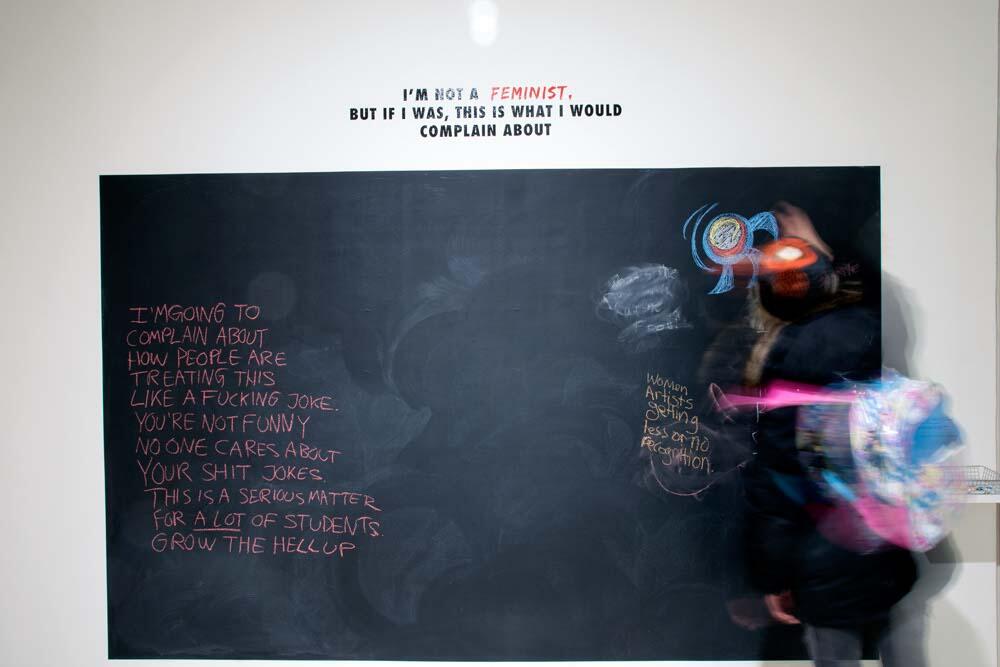 I'M NOT A FEMINIST.
BUT IF I WAS, THIS IS WHAT I WOULD
COMPLAIN ABOUT
I'MGOING TO
COMPLAIN ABOUT
HOW PEOPLE ARE
TREATING THIS
LIKE A FUCKING JOKE.
YOU'RE NOT FUNNY
NO ONE CARES ABOUT
YOUR SHIT JOKES.
THIS IS A SERIOUS MATTER
FOR A LOT OF STUDENTS.
GROW THE HELL UP
Women
Artists
getting
less or no
recognition.